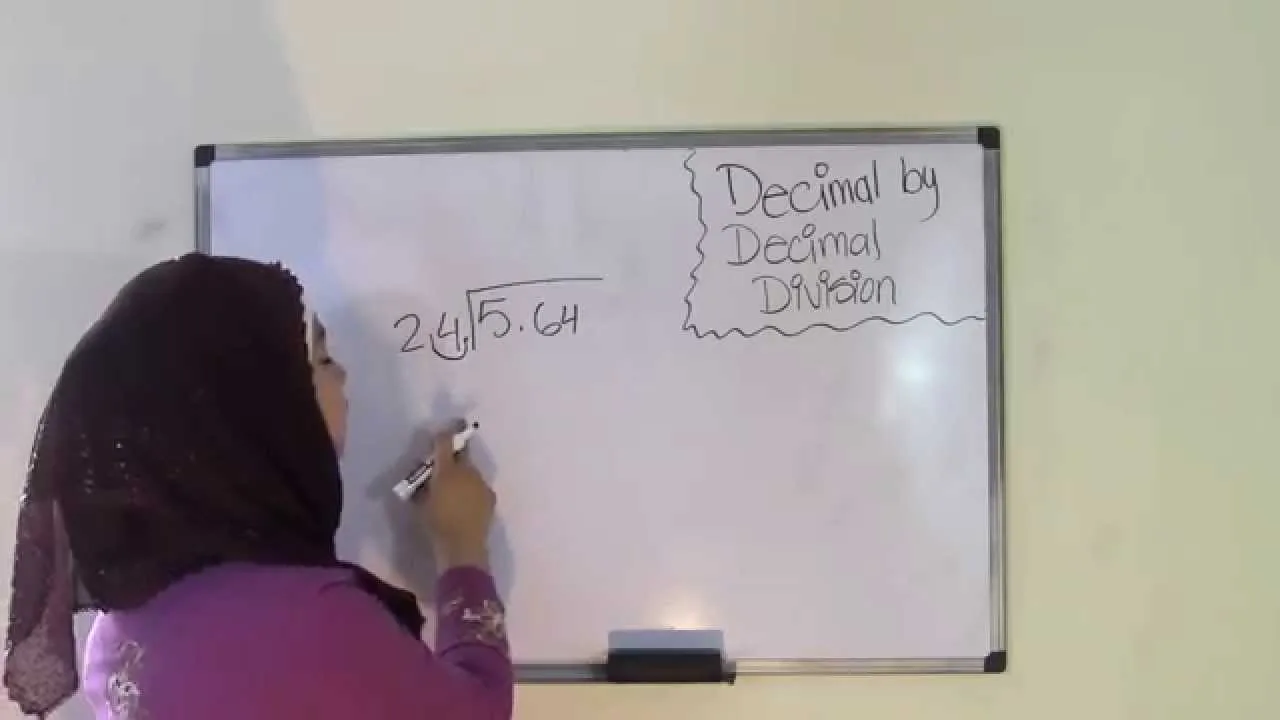 Decimal by
Decimal
Division
2.4.⟌5.64